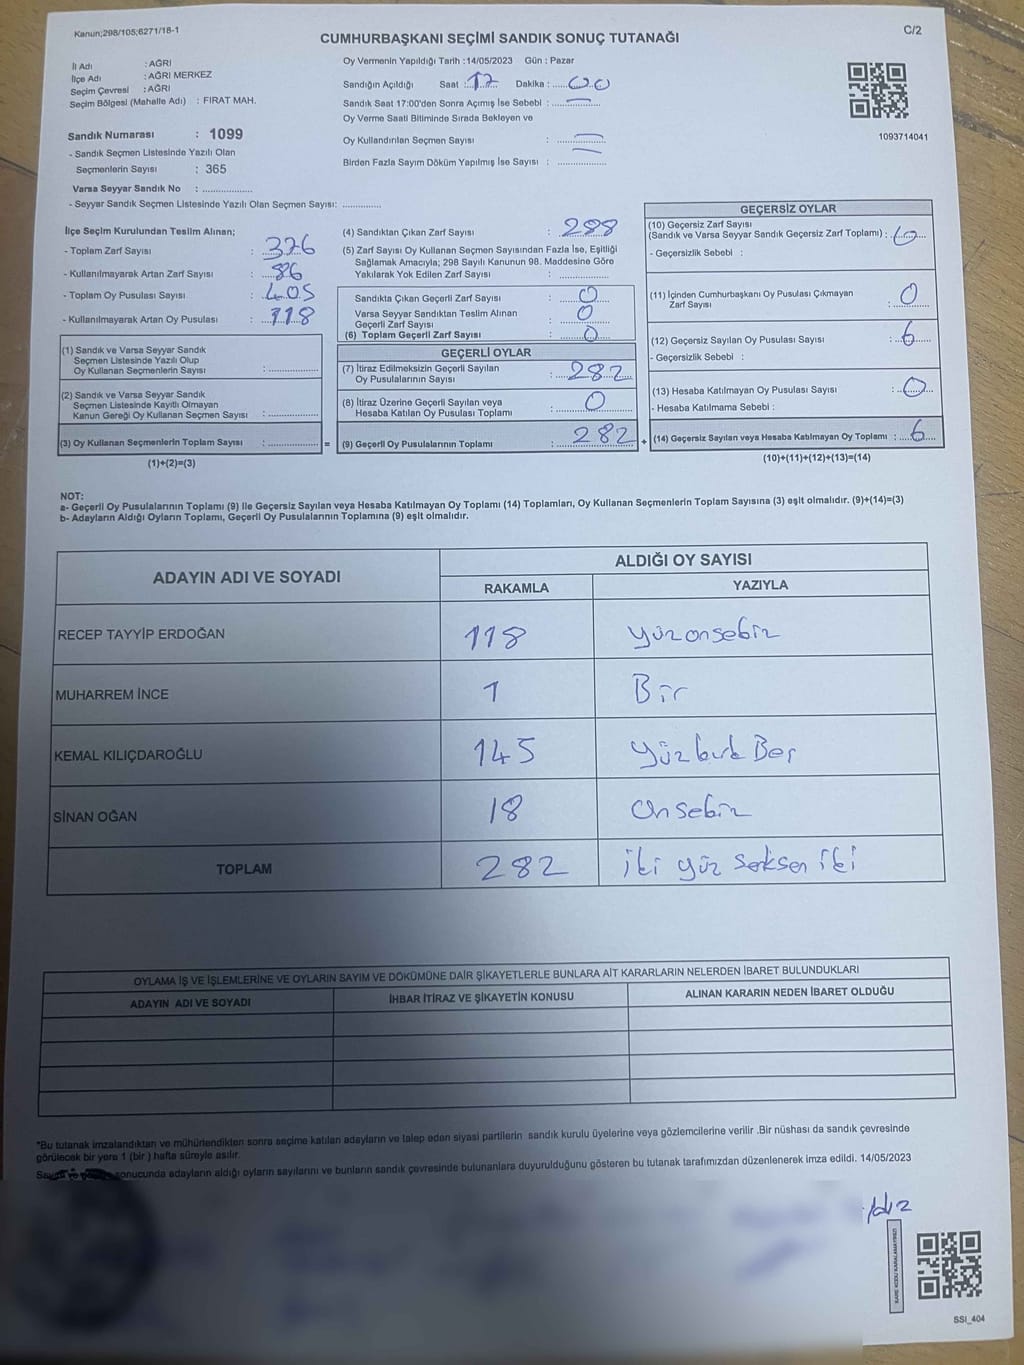 Kanun;298/105;6271/18-1
C/2
CUMHURBAŞKANI SEÇİMİ SANDIK SONUÇ TUTANAĞI
İl Adı : AĞRI
İlçe Adı : AĞRI MERKEZ
Seçim Çevresi : AĞRI
Seçim Bölgesi (Mahalle Adı) : FIRAT MAH.
Sandık Numarası : 1099
- Sandık Seçmen Listesinde Yazılı Olan
Seçmenlerin Sayısı : 365
Varsa Seyyar Sandık No : ..............
- Seyyar Sandık Seçmen Listesinde Yazılı Olan Seçmen Sayısı: ..............
Oy Vermenin Yapıldığı Tarih :14/05/2023 Gün : Pazar
Sandığın Açıldığı Saat : 17 Dakika : 00
Sandık Saat 17:00'den Sonra Açımış İse Sebebi : —
Oy Verme Saati Bitiminde Sırada Bekleyen ve
Oy Kullandırılan Seçmen Sayısı : —
Birden Fazla Sayım Döküm Yapılmış İse Sayısı : —
1093714041
İlçe Seçim Kurulundan Teslim Alınan;
- Toplam Zarf Sayısı : 376
- Kullanılmayarak Artan Zarf Sayısı : 86
- Toplam Oy Pusulası Sayısı : 405
- Kullanılmayarak Artan Oy Pusulası : 118
(1) Sandık ve Varsa Seyyar Sandık
Seçmen Listesinde Yazılı Olup
Oy Kullanan Seçmenlerin Sayısı : ..............
(2) Sandık ve Varsa Seyyar Sandık
Seçmen Listesinde Kayıtlı Olmayan
Kanun Gereği Oy Kullanan Seçmen Sayısı : ..............
(3) Oy Kullanan Seçmenlerin Toplam Sayısı : .............. =
(1)+(2)=(3)
(4) Sandıktan Çıkan Zarf Sayısı : 288
(5) Zarf Sayısı Oy Kullanan Seçmen Sayısından Fazla İse, Eşitliği
Sağlamak Amacıyla; 298 Sayılı Kanunun 98. Maddesine Göre
Yakılarak Yok Edilen Zarf Sayısı : ..............
Sandıkta Çıkan Geçerli Zarf Sayısı : 0
Varsa Seyyar Sandıktan Teslim Alınan
Geçerli Zarf Sayısı : 0
(6) Toplam Geçerli Zarf Sayısı : 0
GEÇERLİ OYLAR
(7) İtiraz Edilmeksizin Geçerli Sayılan
Oy Pusulalarının Sayısı : 282
(8) İtiraz Üzerine Geçerli Sayılan veya
Hesaba Katılan Oy Pusulası Toplamı : 0
(9) Geçerli Oy Pusulalarının Toplamı : 282 +
GEÇERSİZ OYLAR
(10) Geçersiz Zarf Sayısı
(Sandık ve Varsa Seyyar Sandık Geçersiz Zarf Toplamı) :
- Geçersizlik Sebebi :
(11) İçinden Cumhurbaşkanı Oy Pusulası Çıkmayan
Zarf Sayısı : 0
(12) Geçersiz Sayılan Oy Pusulası Sayısı : 6
- Geçersizlik Sebebi :
(13) Hesaba Katılmayan Oy Pusulası Sayısı : 0
- Hesaba Katılmama Sebebi :
(14) Geçersiz Sayılan veya Hesaba Katılmayan Oy Toplamı : 6
(10)+(11)+(12)+(13)=(14)
NOT:
a- Geçerli Oy Pusulalarının Toplamı (9) ile Geçersiz Sayılan veya Hesaba Katılmayan Oy Toplamı (14) Toplamları, Oy Kullanan Seçmenlerin Toplam Sayısına (3) eşit olmalıdır. (9)+(14)=(3)
b- Adayların Aldığı Oyların Toplamı, Geçerli Oy Pusulalarının Toplamına (9) eşit olmalıdır.
ADAYIN ADI VE SOYADI
ALDIĞI OY SAYISI
RAKAMLA YAZIYLA
RECEP TAYYİP ERDOĞAN 118 yüzonsekiz
MUHARREM İNCE 1 Bir
KEMAL KILIÇDAROĞLU 145 yüzkırk Beş
SİNAN OĞAN 18 Onsekiz
TOPLAM 282 iki yüz seksen iki
OYLAMA İŞ VE İŞLEMLERİNE VE OYLARIN SAYIM VE DÖKÜMÜNE DAİR ŞİKAYETLERLE BUNLARA AİT KARARLARIN NELERDEN İBARET BULUNDUKLARI
ADAYIN ADI VE SOYADI İHBAR İTİRAZ VE ŞİKAYETİN KONUSU ALINAN KARARIN NEDEN İBARET OLDUĞU
*Bu tutanak imzalandıktan ve mühürlendikten sonra seçime katılan adayların ve talep eden siyasi partilerin sandık kurulu üyelerine veya gözlemcilerine verilir .Bir nüshası da sandık çevresinde
görülecek bir yere 1 (bir ) hafta süreyle asılır.
sonucunda adayların aldığı oyların sayılarını ve bunların sandık çevresinde bulunanlara duyurulduğunu gösteren bu tutanak tarafımızdan düzenlenerek imza edildi. 14/05/2023
SSI_404